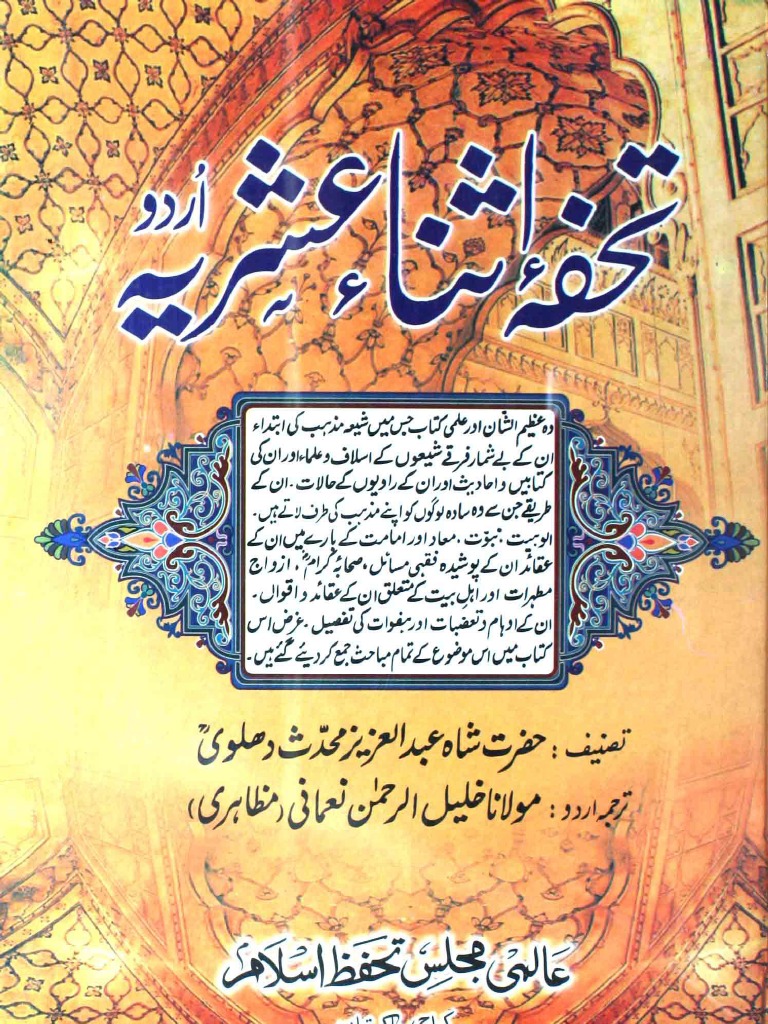 تحفۂ اثناء عشریہ اُردو
وہ عظیم الشان اور علمی کتاب جس میں شیعہ مذہب کی ابتداء
ان کے بے شمار فرقے شیعوں کے اسلاف و علماء اور ان کی
کتابیں و احادیث اور ان کے راویوں کے حالات۔ ان کے
طریقے جن سے وہ سادہ لوگوں کو اپنے مذہب کی طرف لاتے ہیں۔
الوہیت، نبوّت، معاد اور امامت کے بارے میں ان کے
عقائد ان کے پوشیدہ فقہی مسائل، صحابۂ کرامؓ، ازواج
مطہرات اور اہل بیت کے متعلق ان کے عقائد و اقوال۔
ان کے اوہام و تعصبات اور ہفوات کی تفصیل۔ غرض اس
کتاب میں اس موضوع کے تمام مباحث جمع کر دیئے گئے ہیں۔
تصنیف : حضرت شاہ عبد العزیز محدّث دہلویؒ
ترجمہ اردو : مولانا خلیل الرحمٰن نعمانی (مظاہری)
عالمی مجلسِ تحفظ اسلام